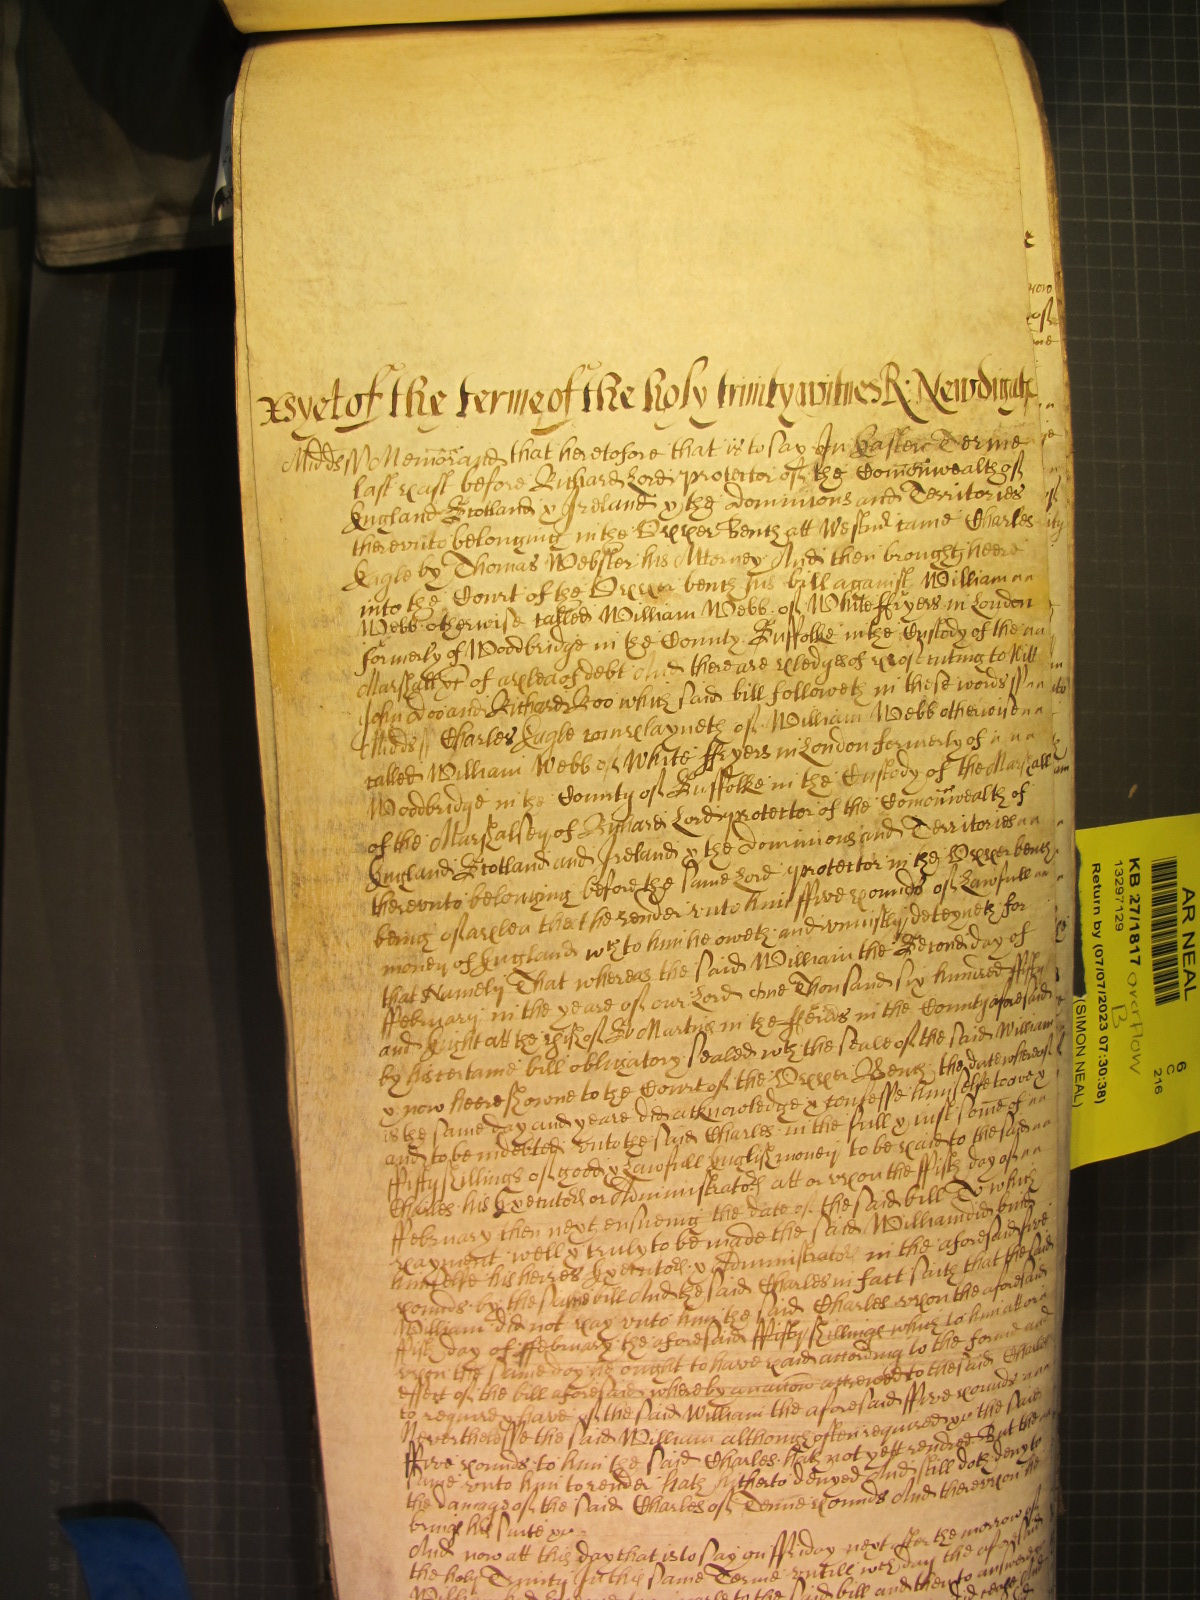 xs yet of the terme of the holy trinity witnes R: Newdigate
Midds Memorand that heretofore that is to say In Easter Terme
last past before Richard Lord protector of the Comonwealth of
England Scotland & Ireland & the dominions and Territories
therevnto belonging in the Vpper Bench att Westm came Charles
Eagle by Thomas Webster his Attorney And then brought heere
into the Court of the Vpper bench his bill against William
Webb otherwise called William Webb of White ffryers in London
formerly of Woodbridge in the County Suffolke in the Custody of the
Marshall &c of a plea of debt And there are pledges of prosecuting to witt
John Doo and Richard Roo which said bill followeth in these words ss
Midds ss Charles Eagle complayneth of William Webb otherwise
called William Webb of White ffryers in London formerly of
Woodbridge in the County of Suffolke in the Custody of the Marshall
of the Marshalsey of Richard Lord protector of the Comonwealth of
England Scotland and Ireland & the dominions and Territories
therevnto belonging before the same Lord protector in the Vpper bench
being of a plea that he render vnto him ffive pounds of Lawfull
money of England wch to him he oweth and vniustly deteyneth for
that Namely That whereas the said William the Second day of
ffebruary in the yeare of our Lord One Thousand six hundred ffifty
and Eight att the pish of St Martyns in the ffeilds in the County aforesaid
by his certaine bill obligatory sealed wth the seale of the said William
& now heere showne to the Court of the Vpper Bench the date whereof
is the same day and yeare did acknowledge & confesse himselfe to owe &
and to be indebted vnto the said Charles in the full & iust some of
ffifty shillings of good & Lawfull English money to be paid to the said
Charles his Executors or Administrators att or vpon the ffifth day of
ffebruary then next ensueing the date of the said bill To which
payment well & truly to be made the said William did bind
himselfe his heires Executors & Administrators in the aforesaid five
pounds by the same bill And the said Charles in fact saith that the said
William did not pay vnto him the said Charles vpon the aforesaid
ffifth day of ffebruary the aforesaid ffifty shillings which to him att or
vpon the same day he ought to have paid according to the forme and
effect of the bill aforesaid whereby an accion accrewed to the said Charles
to require & have of the said William the aforesaid ffive pounds
Neverthelesse the said William although often required &c the said
ffive pounds to him the said Charles hath not yett rendred But the
same vnto him to render hath hitherto denyed And still doth deny to
the damage of the said Charles of Tenne pounds And therevpon he
brings his suite &c
And now att this day that is to say on ffriday next after the morrow of
the holy Trinity In this same Terme vntill wch day the aforesaid
William had to the said bill and then to answere
AR NEAL
KB 27/1817 overflow
B
13297129
Return by (07/07/2023 07:30:38)
(SIMON NEAL)
6
C
216